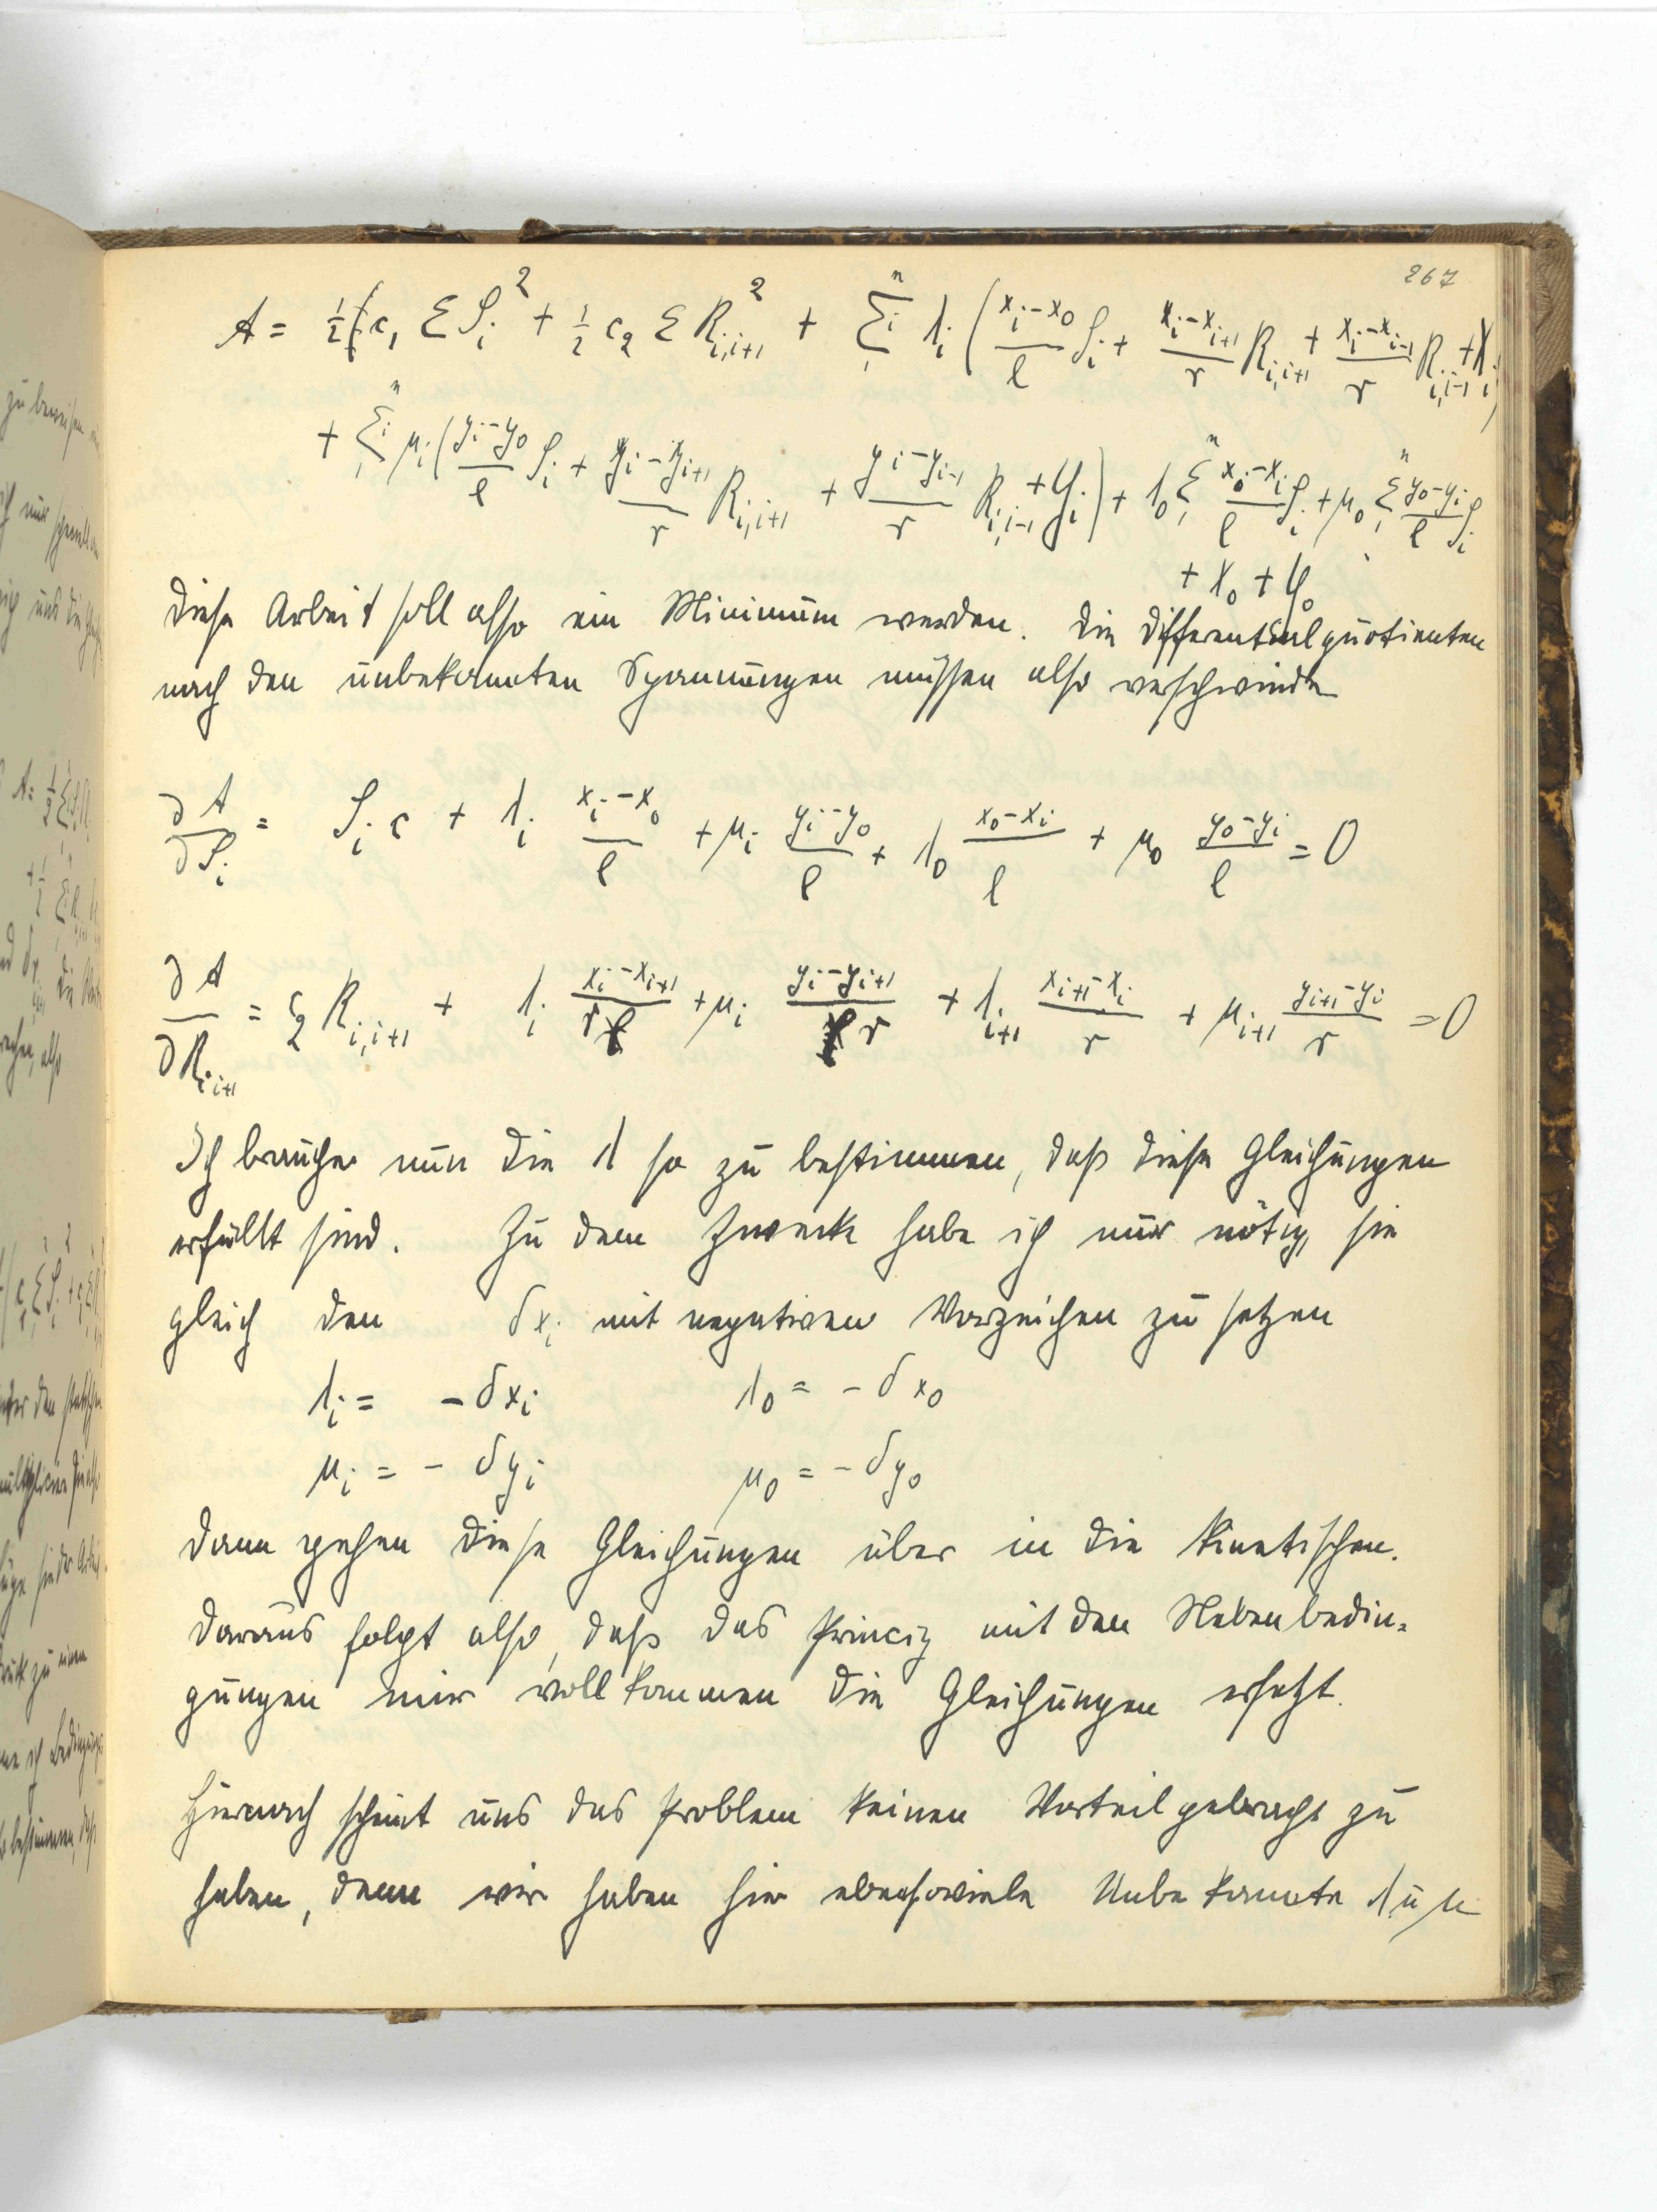 267
A = ½(c₁ Σ S_i² + ½ c₂ Σ R_{i,i+1}² + Σ_1^n λ_i ( (x_i−x_0)/l S_i + (x_i−x_{i+1})/r R_{i,i+1} + (x_i−x_{i−1})/r R_{i,i−1} + X_i )
+ Σ_1^n μ_i ( (y_i−y_0)/l S_i + (y_i−y_{i+1})/r R_{i,i+1} + (y_i−y_{i−1})/r R_{i,i−1} + Y_i ) + λ_0 Σ_1^n (x_0−x_i)/l S_i + μ_0 Σ_1^n (y_0−y_i)/l S_i
+ X_0 + Y_0
Diese Arbeit soll also ein Minimum werden. Die Differentialquotienten
nach den unbekannten Spannungen müssen also verschwinden
∂A/∂S_i = S_i c + λ_i (x_i−x_0)/l + μ_i (y_i−y_0)/l + λ_0 (x_0−x_i)/l + μ_0 (y_0−y_i)/l = 0
∂A/∂R_{i,i+1} = c₂ R_{i,i+1} + λ_i (x_i−x_{i+1})/r + μ_i (y_i−y_{i+1})/r + λ_{i+1} (x_{i+1}−x_i)/r + μ_{i+1} (y_{i+1}−y_i)/r = 0
Ich brauche nun die λ so zu bestimmen, daß diese Gleichungen
erfüllt sind. Zu dem Zwecke habe ich nur nötig, sie
gleich den δx_i mit negativen Vorzeichen zu setzen
λ_i = −δx_i λ_0 = −δx_0
μ_i = −δy_i μ_0 = −δy_0
Dann gehen diese Gleichungen über in die kinetischen.
Daraus folgt also, daß das Princip mit den Nebenbedin=
gungen mir vollkommen die Gleichungen ersetzt.
Hiernach scheint uns das Problem keinen Vorteil gebracht zu
haben, denn wir haben hier ebensoviele Unbekannte λ u μ